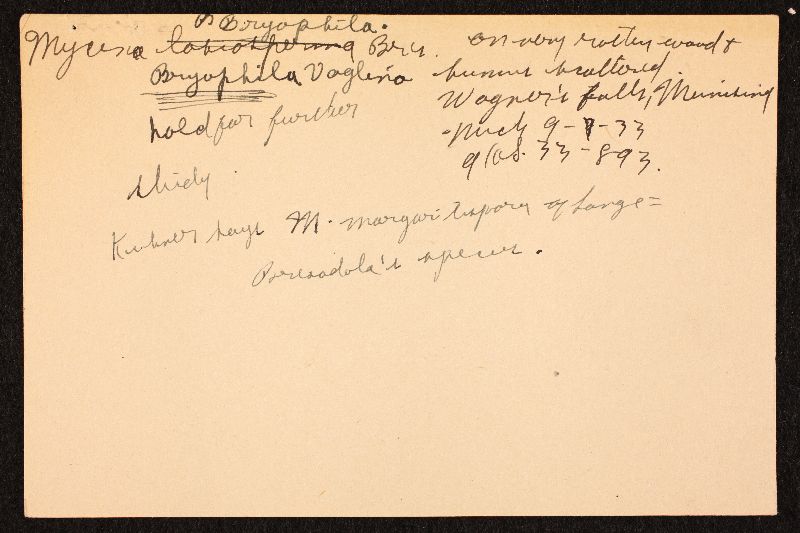 Bryophila.
Mycena labiosperma Bres. on very rotten wood &
Bryophila Voglino humus scattered.
Wagner's falls, Munising
hold for further
Mich 9-9-33
33-893.
study.
Kuhner says M. margaritispora of Lange =
Bresadola's species.